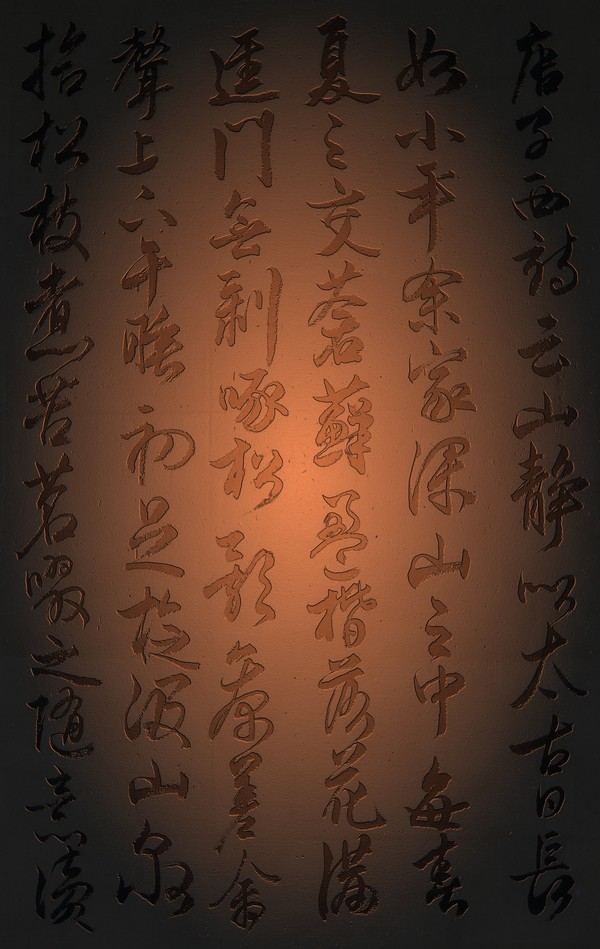 唐子西詩云山靜似太古日長
如小年余家深山之中每春
夏之交蒼蘚盈階落花滿
逕門無剝啄松影參差禽
聲上下午睡初足旋汲山泉
拾松枝煮苦茗啜之隨意讀